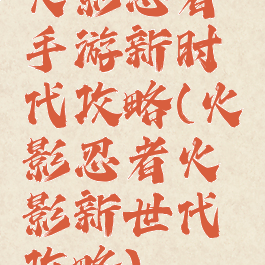 火影忍者
手游新时
代攻略(火
影忍者火
影新世代
攻略)